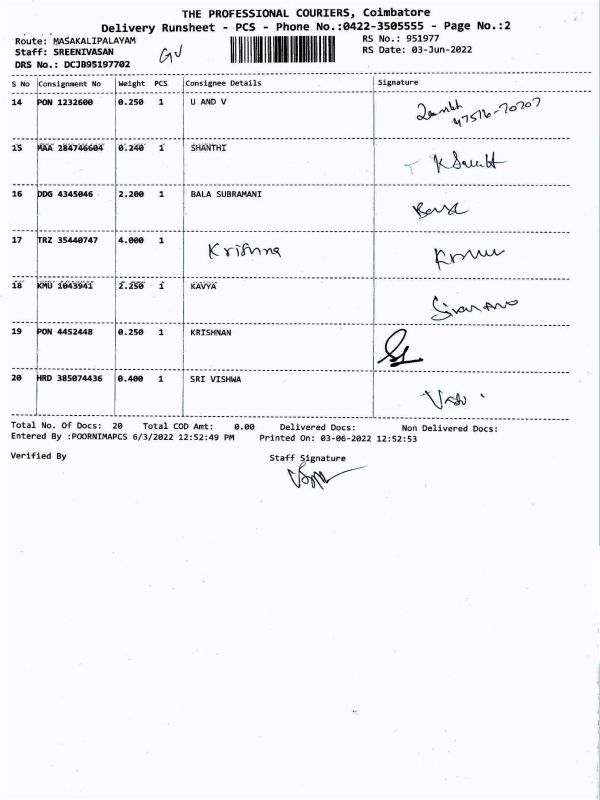 THE PROFESSIONAL COURIERS, Coimbatore
Delivery Runsheet - PCS - Phone No.:0422-3505555 - Page No.:2
Route: MASAKALIPALAYAM
Staff: SREENIVASAN
DRS No.: DCJB95197702
GV
RS No.: 951977
RS Date: 03-Jun-2022
S No Consignment No Weight PCS Consignee Details Signature
14 PON 1232600 0.250 1 U AND V
47516-70707
15 MAA 284746604 0.240 1 SHANTHI
16 DDG 4345046 2.200 1 BALA SUBRAMANI
17 TRZ 35440747 4.000 1 Krishna
18 KMU 1043941 2.250 1 KAVYA
19 PON 4452448 0.250 1 KRISHNAN
20 HRD 385074436 0.400 1 SRI VISHWA
Total No. Of Docs: 20 Total COD Amt: 0.00 Delivered Docs: Non Delivered Docs:
Entered By :POORNIMAPCS 6/3/2022 12:52:49 PM Printed On: 03-06-2022 12:52:53
Verified By Staff Signature